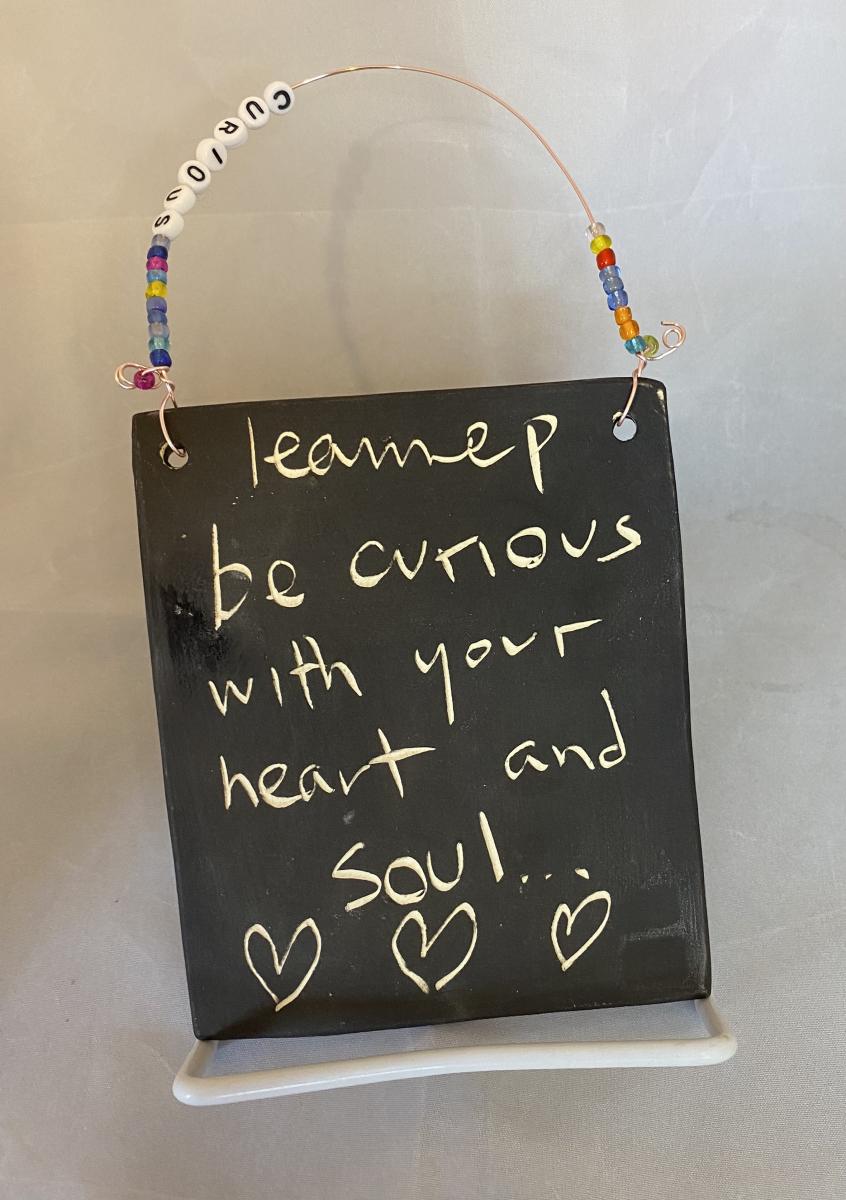 CURIOUS
leannep
be curious
with your
heart and
soul...